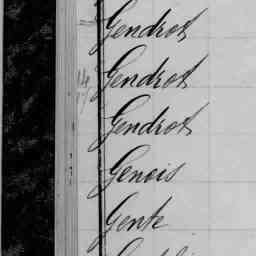 Gendrot
Gendrot
Gendrot
Genois
Gente